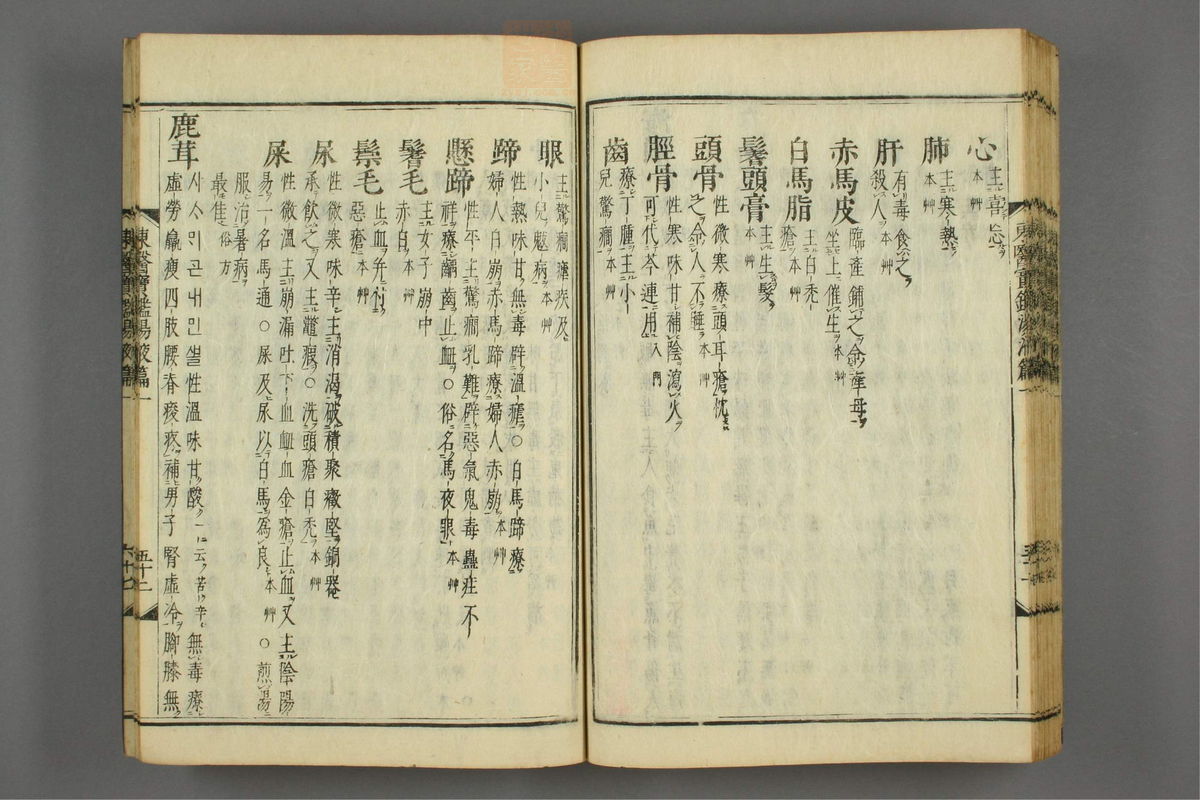 心 主喜忘 本艸
肺 主寒熱 本艸
肝 有毒食之殺人 本艸
赤馬皮 臨產鋪之令產母坐上催生 本艸
白馬脂 主白禿瘡 本艸
鬐頭膏 主生髮 本艸
頭骨 性微寒療頭耳瘡枕之令人不睡 本艸
脛骨 性寒味甘補陰瀉火可代芩連用 入門
齒 療丁腫主小兒驚癎 本艸
眼 主驚癎瘧疾及小兒魃病 本艸
蹄 性熱味甘無毒辟溫瘧○白馬蹄療婦人白崩赤馬蹄療婦人赤崩 本艸
懸蹄 性平主驚癎乳難辟惡氣鬼毒蠱疰不祥療齲齒止血○俗名馬夜眼 本艸
鬐毛 主女子崩中赤白 本艸
鬃毛 止血并惡瘡 本艸
尿 性微寒味辛主消渴破積聚癥堅銅器承飮之又主鼈瘕○洗頭瘡白禿 本艸
屎 性微溫主崩漏吐下血衄血金瘡止血又主陰陽
易一名馬通○屎及尿以白馬爲良 本艸 ○煎湯
服治暑病最佳 俗方
鹿茸 사ᄉᆞᄆᆡ곤내민ᄲᅳᆯ性溫味甘酸一云苦辛無毒療
虛勞羸瘦四肢腰脊痠疼補男子腎虛冷脚膝無
東醫寶鑑湯液篇一